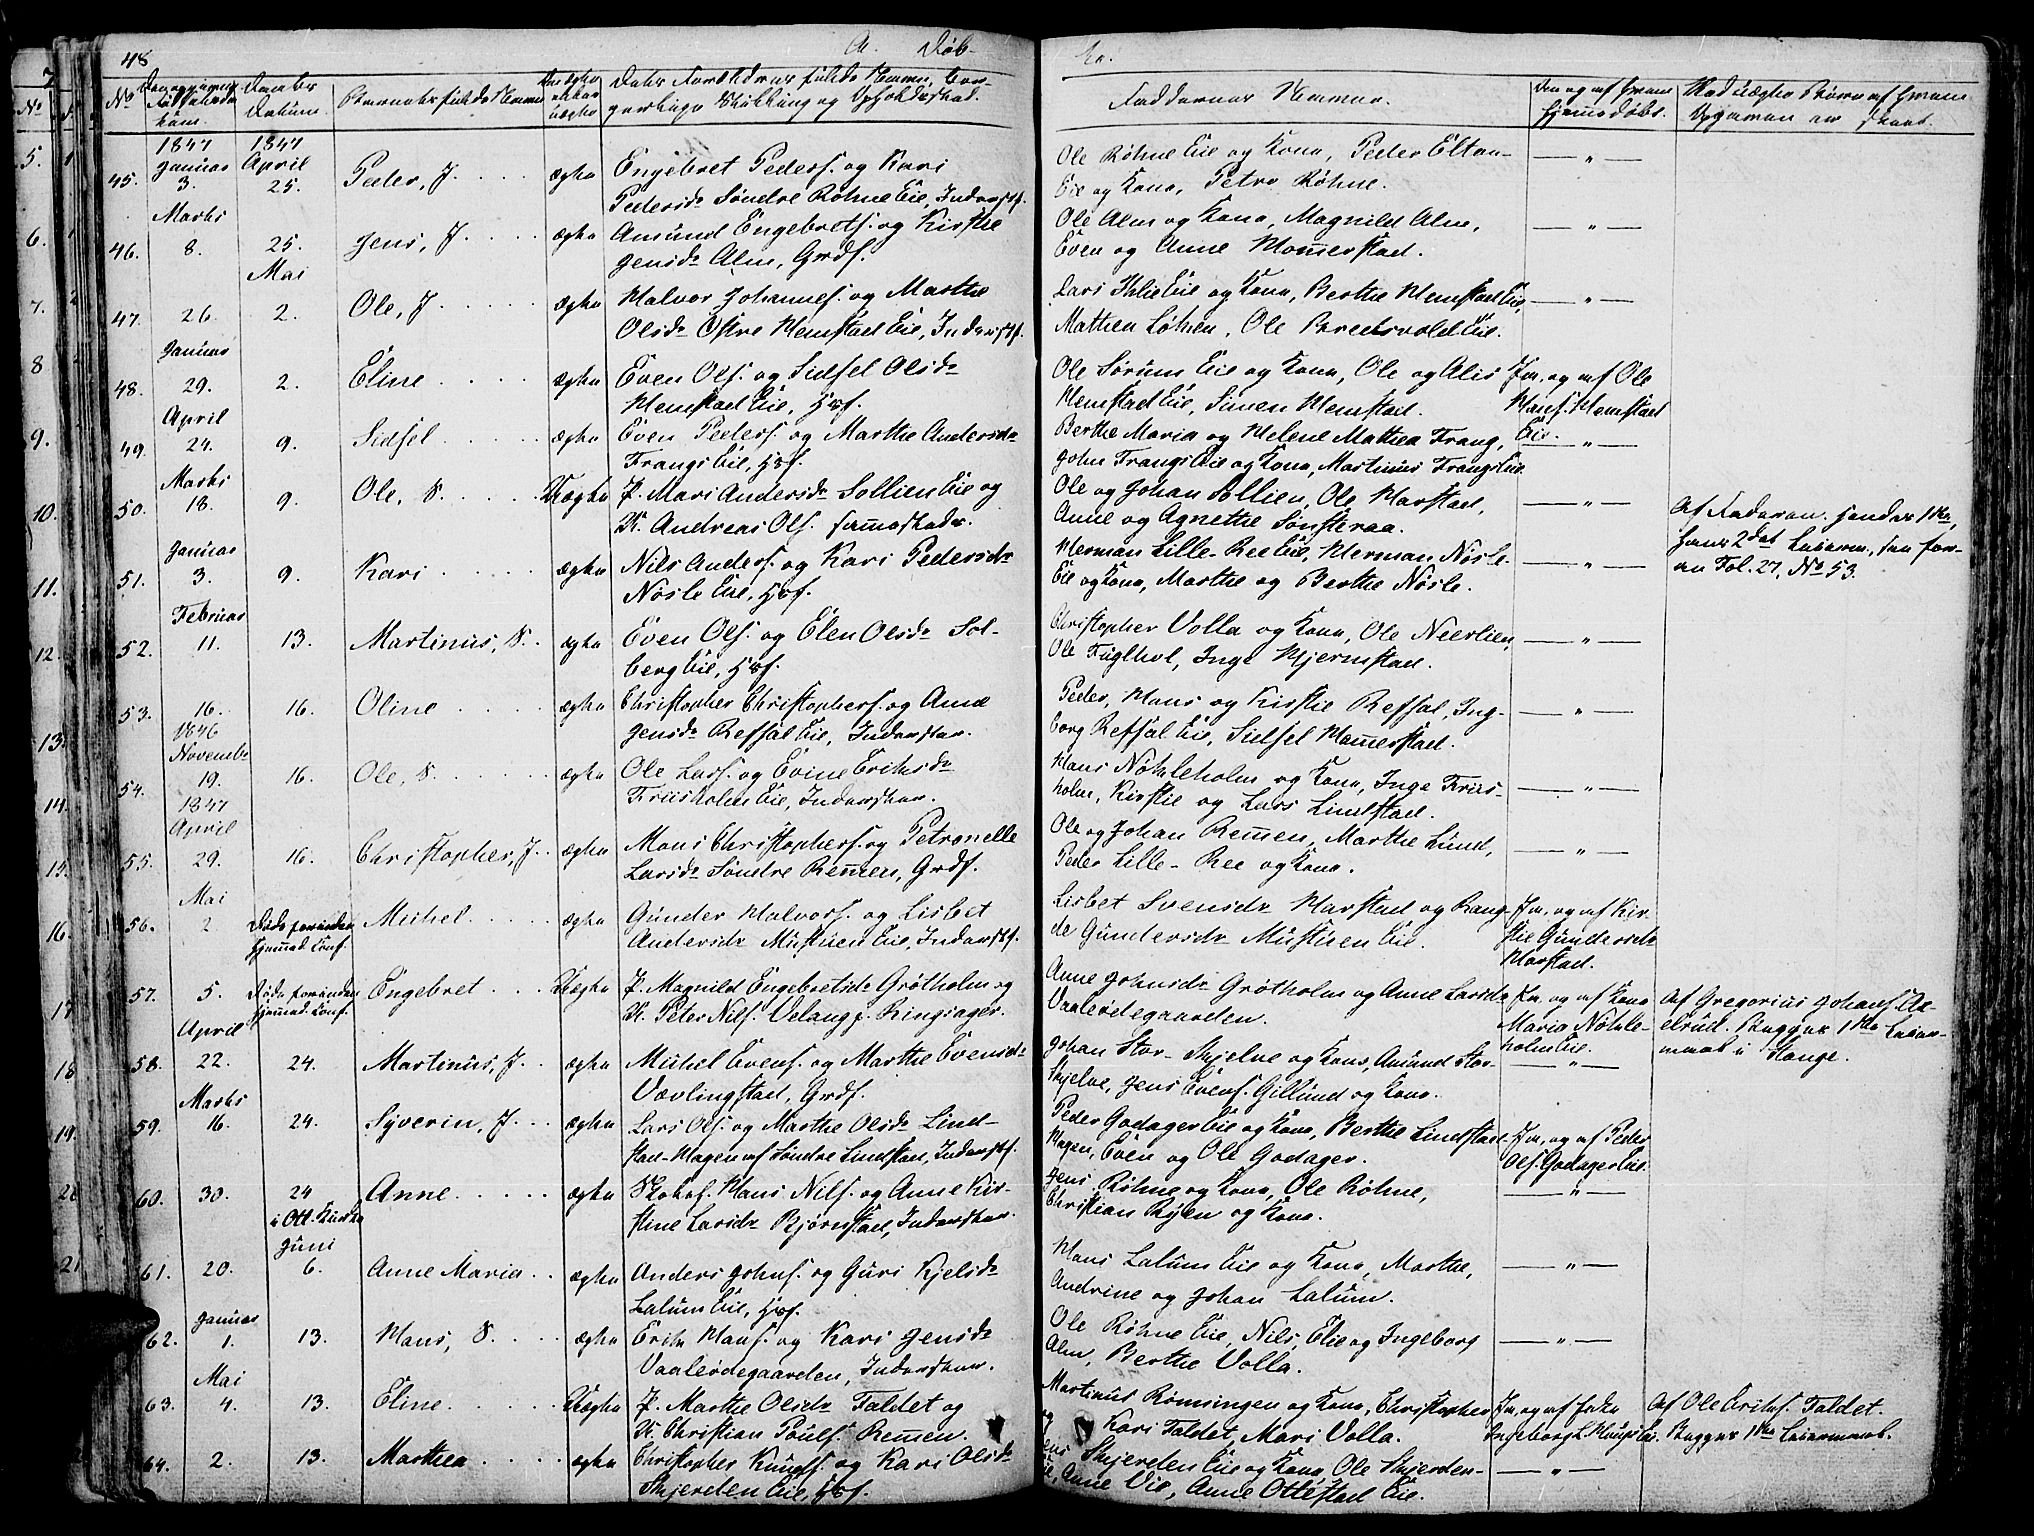 48
A. Døb-
No
Daaens
Datum.
Barnets fulde Navne
Ægte
eller
uægte
Faddernes Navne.
1847
1847
Januar
April
45. 3. 25. Peder, J. ægte Engebret Peders. og Kari
Pedersdr Søndre Røhne Eie, Inderstf.
Ole Røhne Eie og Kone, Peder Eltan-
Eie og Kone, Petro Røhne.
Marts
46. 8. 25. Jens, J. ægte Amund Engebrets. og Kirstie
Jensdr Alm, Grdf.
Ole Alm og Kone, Magnild Alm,
Even og Anne Hommerstad.
Mai
47. 26. 2. Ole, J. ægte Halvor Johannes. og Marthe
Olsdr Østre Hemstad Eie, Inderstf.
Lars Ihlie Eie og Kone, Berthe Hemstad Eie,
Mathea Løken, Ole Bredsvold Eie.
Januar
48. 29. 2. Eline ægte Even Ols. og Sidsel Olsdr
Hemstad Eie, Hsf.
Ole Sørum Eie og Kone, Ole og Alis
Hemstad Eie, Simen Hemstad.
Ja, og af Ole
Hans. Hemstad
Eie.
April
49. 24. 9. Sidsel ægte Even Peders. og Marthe Andersdr
Frangs Eie, Hsf.
Berthe Maria og Helene Mathea Frang,
John Frangs Eie og Kone, Martinus Frangs Eie
Marts
50. 18. 9. Ole, S. Uægte P. Mari Andersdr Sollien Eie og
U. Andreas Ols.
Ole og Johan Sollien, Ole Harstad,
Anne og Agnethe Sønsteraa.
Af Faderen. hendes 1ste,
hans 2det Leierm., see for-
an Fol. 27, No 53.
Januar
51. 3. 9. Kari ægte Nils Anders. og Kari Pedersdr
Nøsle Eie, Hsf.
Herman Lille-Ree Eie, Herman Nøsle-
Eie og Kone, Marthe og Berthe Nøsle.
Februar
52. 11. 13. Martinus, S. ægte Even Ols. og Elen Olsdr Sol-
berg Eie, Hsf.
Christopher Volla og Kone, Ole Neerlien,
Ole Fuglhol, Inge Hjernstad.
53. 16. 16. Oline ægte Christopher Christophers. og Anne
Jensdr Refsal Eie, Inderster.
Peder, Hans og Kirstie Refsal, Ing-
borg Refsal Eie, Sidsel Hommerstad.
1846
Novembr
54. 19. 16. Ole, S. ægte Ole Lars. og Evine Eriksdr
Friisholm Eie, Inderster.
Hans Nøkleholm og Kone, Inge Friis-
holm, Kirstie og Lars Lindstad.
1847
April
55. 29. 16. Christopher, J. ægte Hans Christophers. og Petronelle
Larsdr Søndre Remmen, Grdf.
Ole og Johan Remmen, Marthe Lund,
Peder Lille-Ree og Kone.
Mai
56. 2 Døde forinden
hjemmed. Conf. Michel ægte Gunder Halvors. og Lisbet
Andersdr Mustuen Eie, Inderstf.
Lisbet Svensdr Harstad og Rang-
de Gundersdr Mustuen Eie.
Ja, og af Kir-
stie Gundersdr
Harstad.
57. 5. Døde forinden
hjemmed. Conf. Engebret Uægte P. Magnild Engebretsdr Grøtholm og
U. Peter Nils. Velang Ringsager.
Anne Johnsdr Grøtholm og Anne Larsdr
Vaalerødegaarden.
Ja, og af Kone
Maria Nøkle-
holm Eie.
Af Gregorius Johans.
Begges 1ste Leier-
maal i Stange.
April
58. 22. 24. Martinus, J. ægte Michel Evens. og Marthe Evensdr
Vævlingstad, Grdf.
Johan Stor-Skjelve og Kone, Amund Stor-
Skjelve, Jens Evens. Gillund og Kone.
Marts
59. 16. 24. Syverin, J. ægte Lars Ols. og Marthe Olsdr Lind-
stad-Hagen af Søndre Lindstad, Inderstf.
Peder Godager Eie og Kone, Berthe Lindstad-
Hagen, Even og Ole Godager.
Ja, og af Peder
Ols. Godager Eie.
60. 30. 24
i Ott. Kirke Anne ægte Skohof. Hans Nils. og Anne Kir-
stine Larsdr Bjørnstad, Inderster.
Jens Røhne og Kone, Ole Røhne,
Christian Ryen og Kone.
Juni
61. 20. 6. Anne Maria ægte Anders Johns. og Guri Kjelsdr
Lalum Eie, Hsf.
Hans Lalum Eie og Kone, Marthe,
Andrine og Johan Lalum.
Januar
62. 1. 13. Hans, S. ægte Erik Hans. og Kari Jensdr
Vaalerødegaarden, Inderster.
Ole Røhne Eie, Nils, Elie og Ingeborg
Alm, Berthe Volla.
Mai
63. 4. 13. Eline Uægte P. Marthe Olsdr Faldet og
U. Christian Pouls. Remmen.
Martinus Romsingen og Kone, Christopher
og Kari Faldet, Mari Volla.
Ja, og af
Ingeborg
Af Ole Eriks. Faldet.
Begges 1ste Leiermaal.
64. 2. 13. Marthea ægte Christopher Knuds. og Kari Olsdr
Skjerden Eie, Hsf.
Jens Skjerden Eie og Kone, Ole Skjerden-
Eie, Anne Vie, Anne Ottestad Eie.